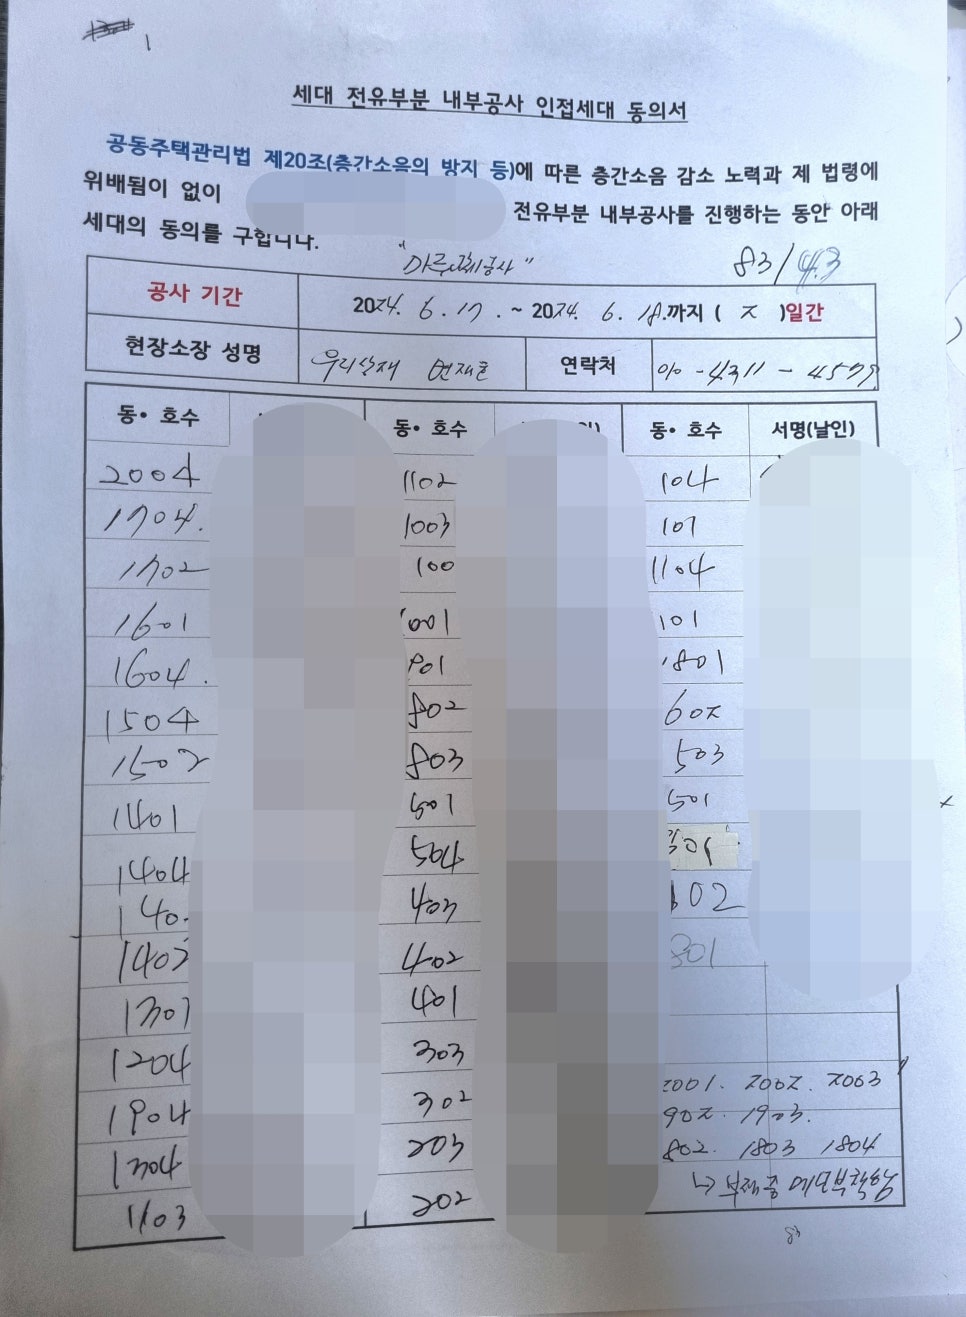 1
세대 전유부분 내부공사 인접세대 동의서
공동주택관리법 제20조(층간소음의 방지 등)에 따른 층간소음 감소 노력과 제 법령에
위배됨이 없이 전유부분 내부공사를 진행하는 동안 아래
세대의 동의를 구합니다.
"마루교체공사" 83/43
공사 기간 2024. 6. 17. ~ 2024. 6. 18.까지 ( 2 )일간
현장소장 성명 우리상재 연락처 010-4311-4579
동• 호수 동• 호수 동• 호수 서명(날인)
2004 1102 104
1704. 1003 101
1702 100 1104
1601 1001 101
1604. 901 1801
1504 802 602
1502 803 503
1401 501 501
1404 504 301
140 403 102
1402 402 801
1301 401
1204 303 2001. 2002. 2003
1904 302 902. 1903.
1304 203 802. 1803 1804
1103 202 ↳ 부재중 메모부착함